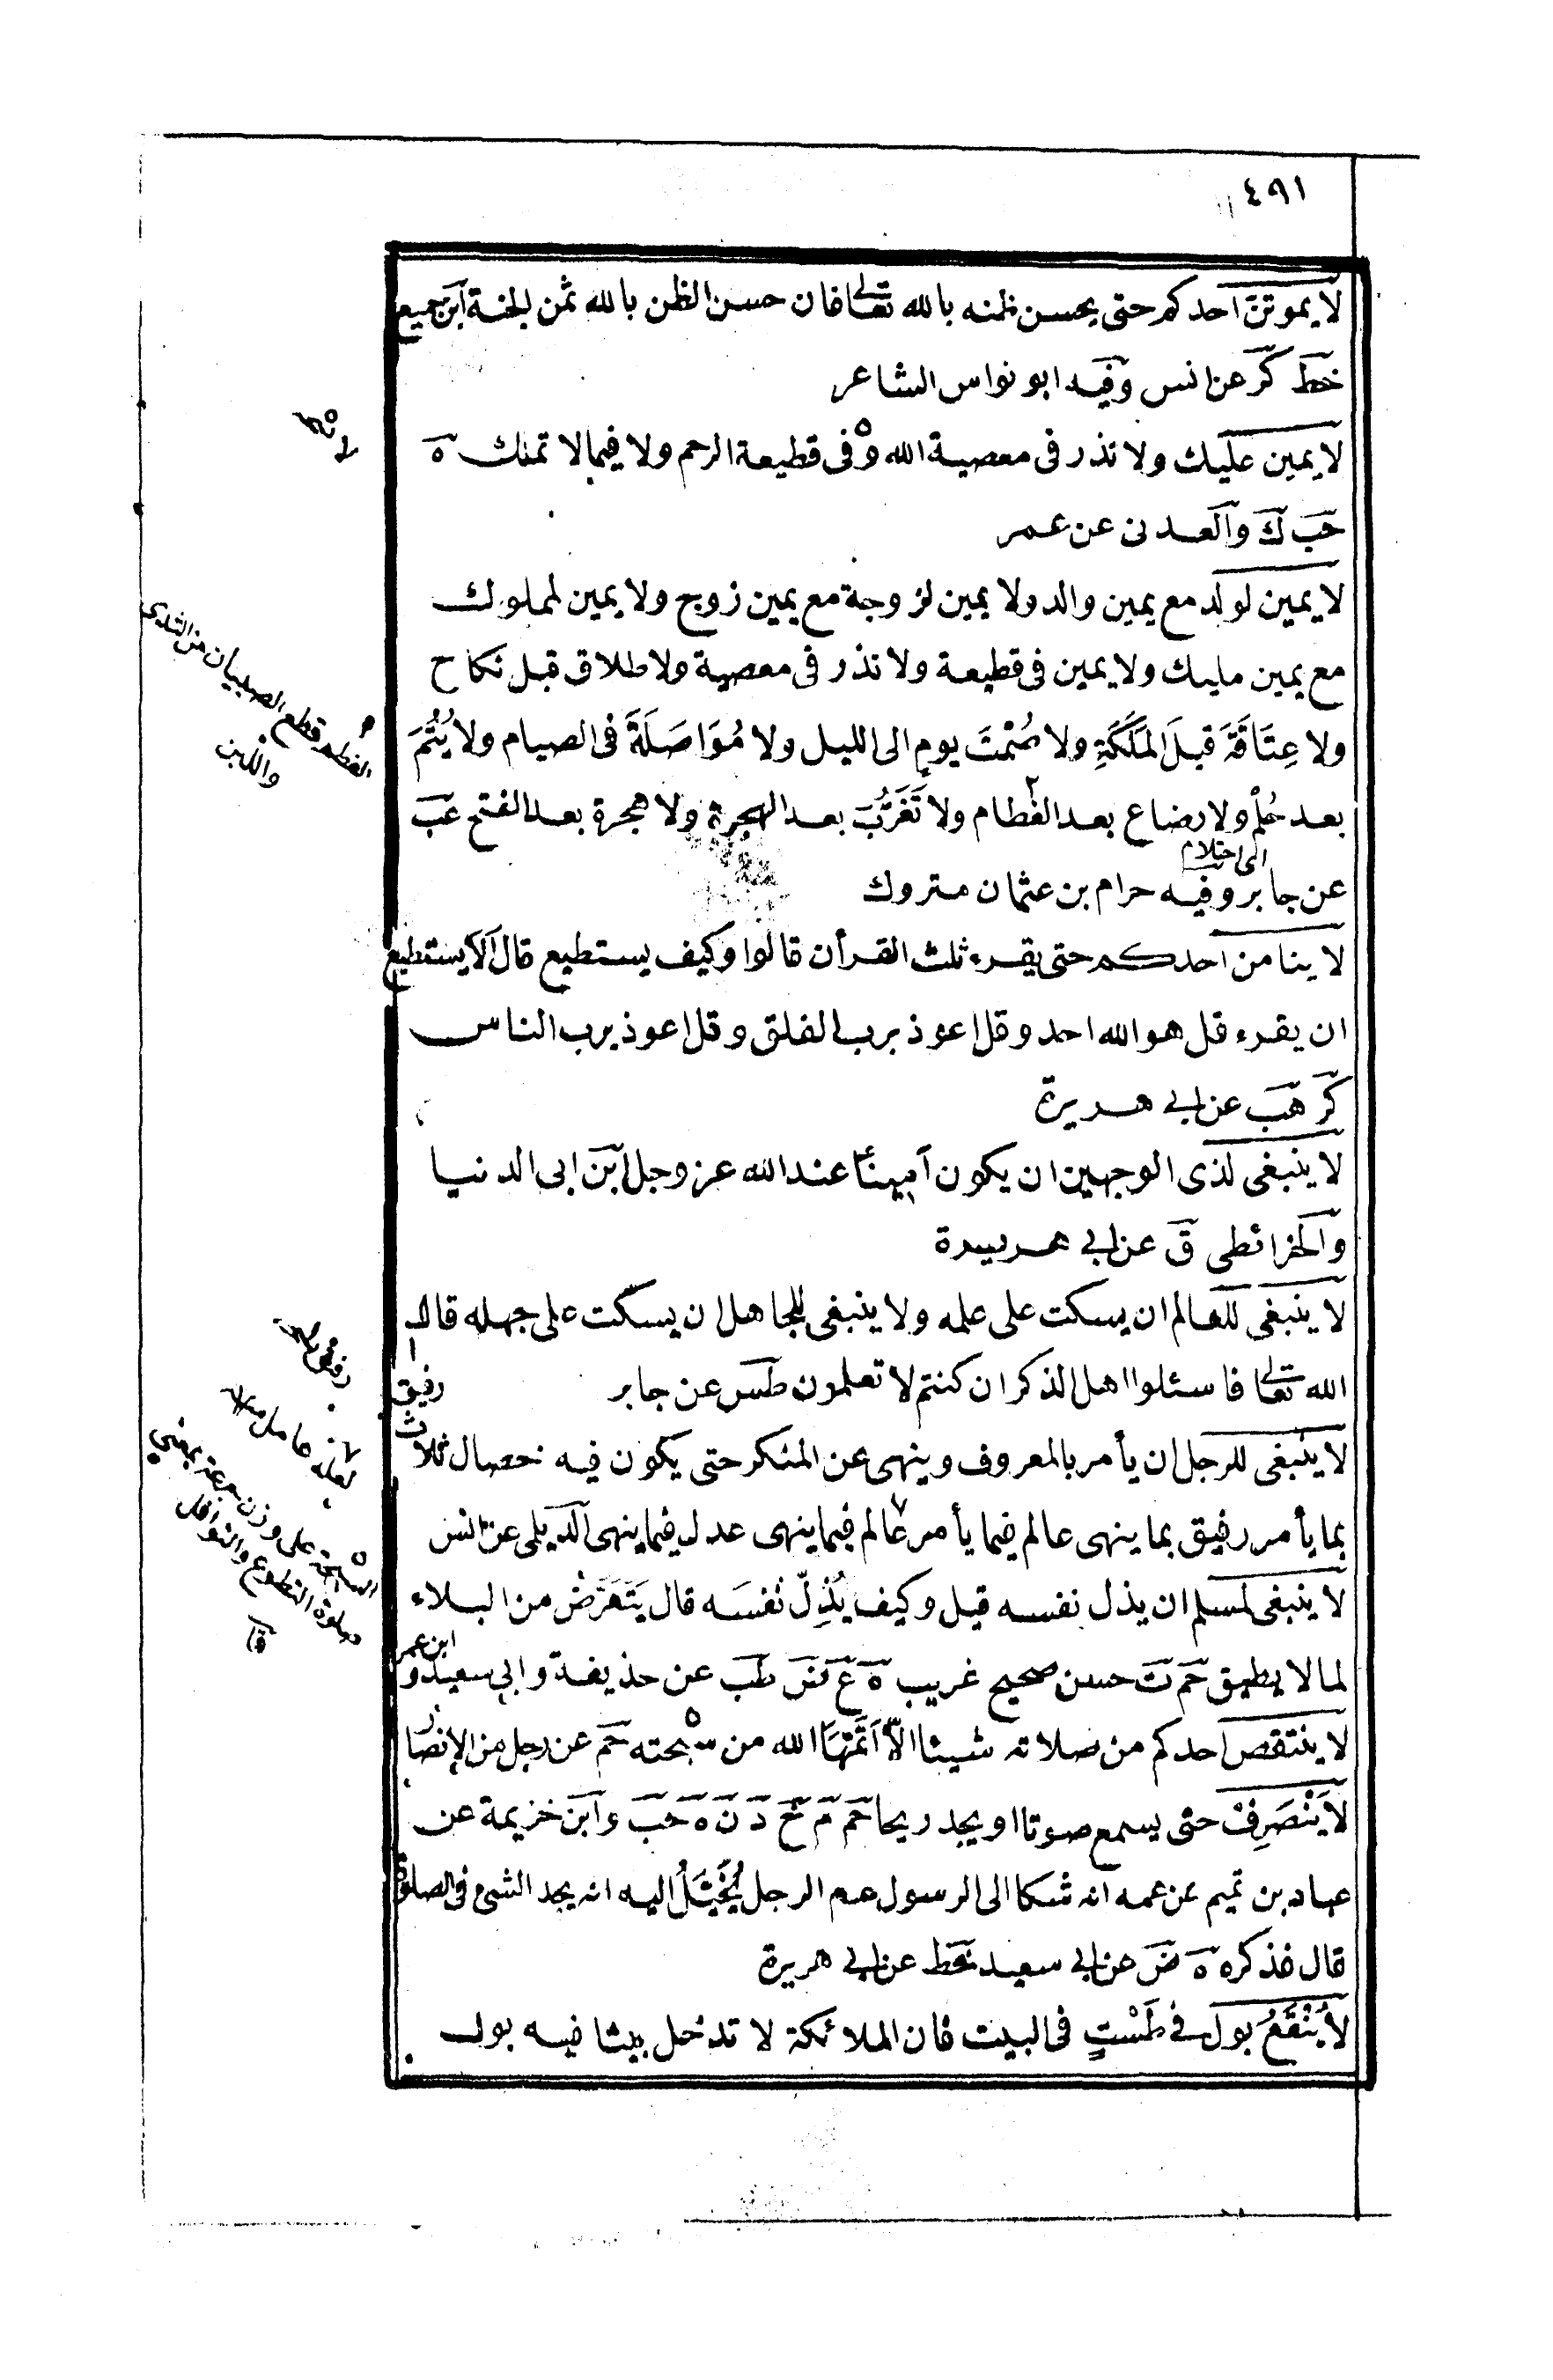 ٤٩١
لا يموتن احدكم حتى يحسن ظنه بالله تعالى فان حسن الظن بالله ثمن الجنة ابن جميع
خط كر عن انس وفيه ابو نواس الشاعر
لا يمين عليك ولا نذر فى معصية الله و فى قطيعة الرحم ولا فيما لا تملك ه
حب ك والعدنى عن عمر
لا يمين لولد مع يمين والد ولا يمين لزوجة مع يمين زوج ولا يمين لمملوك
مع يمين مليك ولا يمين فى قطيعة ولا نذر فى معصية ولا طلاق قبل نكاح
ولا عِتَاقَةَ قبلَ المَلَكَةِ ولا صُمْتَ يومٍ الى الليل ولا مُوَاصَلَةَ فى الصيام ولا يُتْمَ
بعد حُلْم ولا رضاع بعد الفطام ولا تَغَرُّبَ بعد الهجرة ولا هجرة بعد الفتح عب
اى احتلام
عن جابر وفيه حرام بن عثمان متروك
لا ينامن احدكم حتى يقرء ثلث القرأن قالوا وكيف يستطيع قال الا يستطيع
ان يقرء قل هو الله احد وقل اعوذ برب الفلق وقل اعوذ برب الناس
كر هب عن ابى هريرة
لا ينبغى لذى الوجهين ان يكون امينا عند الله عز وجل ابن ابى الدنيا
والخرائطى ق عن ابى هريرة
لا ينبغى للعالم ان يسكت على علمه ولا ينبغى للجاهل ان يسكت على جهله قال
الله تعالى فاسئلوا اهل الذكر ان كنتم لا تعلمون طس عن جابر
رفيق
لا ينبغى للرجل ان يأمر بالمعروف وينهى عن المنكر حتى يكون فيه خصال ثلاث
بما يأمر رفيق بما ينهى عالم فيما يأمر عالم فيما ينهى عدل فيما ينهى الديلمى عن انس
لا ينبغى لمسلم ان يذل نفسه قيل وكيف يُذِلّ نفسَه قال يَتَعَرَّضُ من البلاء
لما لا يطيق حم ت حسن صحيح غريب ه ع ض طب عن حذيفة وابى سعيد و ابن عمر
لا ينتقص احدكم من صلاته شيئا الاّ اَتَمَّهَا الله من سبحته حم عن رجل من الانصار
لا يَنْصَرِفْ حتى يسمع صوتا او يجد ريحا حم م خ د ن ه حب وابن خزيمة عن
عباد بن تميم عن عمه انه شكا الى الرسول عم الرجل يُخَيَّلُ اليه انه يجد الشئ فى الصلوة
قال فذكره ه ض عن ابى سعيد خط عن ابى هريرة
لا يُنْقَعُ بول فى طَسْتٍ فى البيت فان الملائكة لا تدخل بيتا فيه بول
الفطم قطع الصبيان من الثدى
واللبن
السبحة على وزن سرعة بمعنى
صلوة التطوع والنوافل